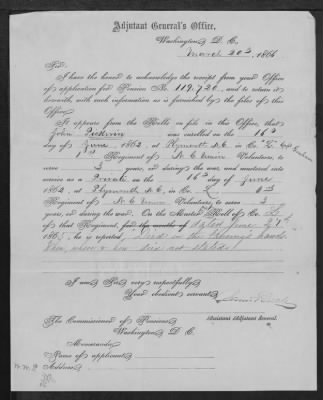 Adjutant General's Office,
Washington, D. C.
March 20th, 1866
Sir:
I have the honor to acknowledge the receipt from your Office
of application for Pension No. 119,720, and to return it
herewith, with such information as is furnished by the files of this
Office.
It appears from the Rolls on file in this Office, that
John was enrolled on the 16th
day of June, 1862, at Plymouth N.C. in Co.
1st Regiment of N.C. Volunteers, to serve
3 years, or during the war, and mustered into
service as a Private on the 16th day of June,
1862, at Plymouth, N.C., in Co.
Regiment of N.C. Volunteers, to serve 3
years, or during the war. On the Muster Roll of Co.
of that Regiment, for the months of dated June 27th
1865, he is reported
when, where & how died not stated
I am, Sir, very respectfully,
Your obedient servant,
Assistant Adjutant General.
The Commissioner of Pensions,
Washington, D. C.
Memoranda:
Name of applicant,
Address,